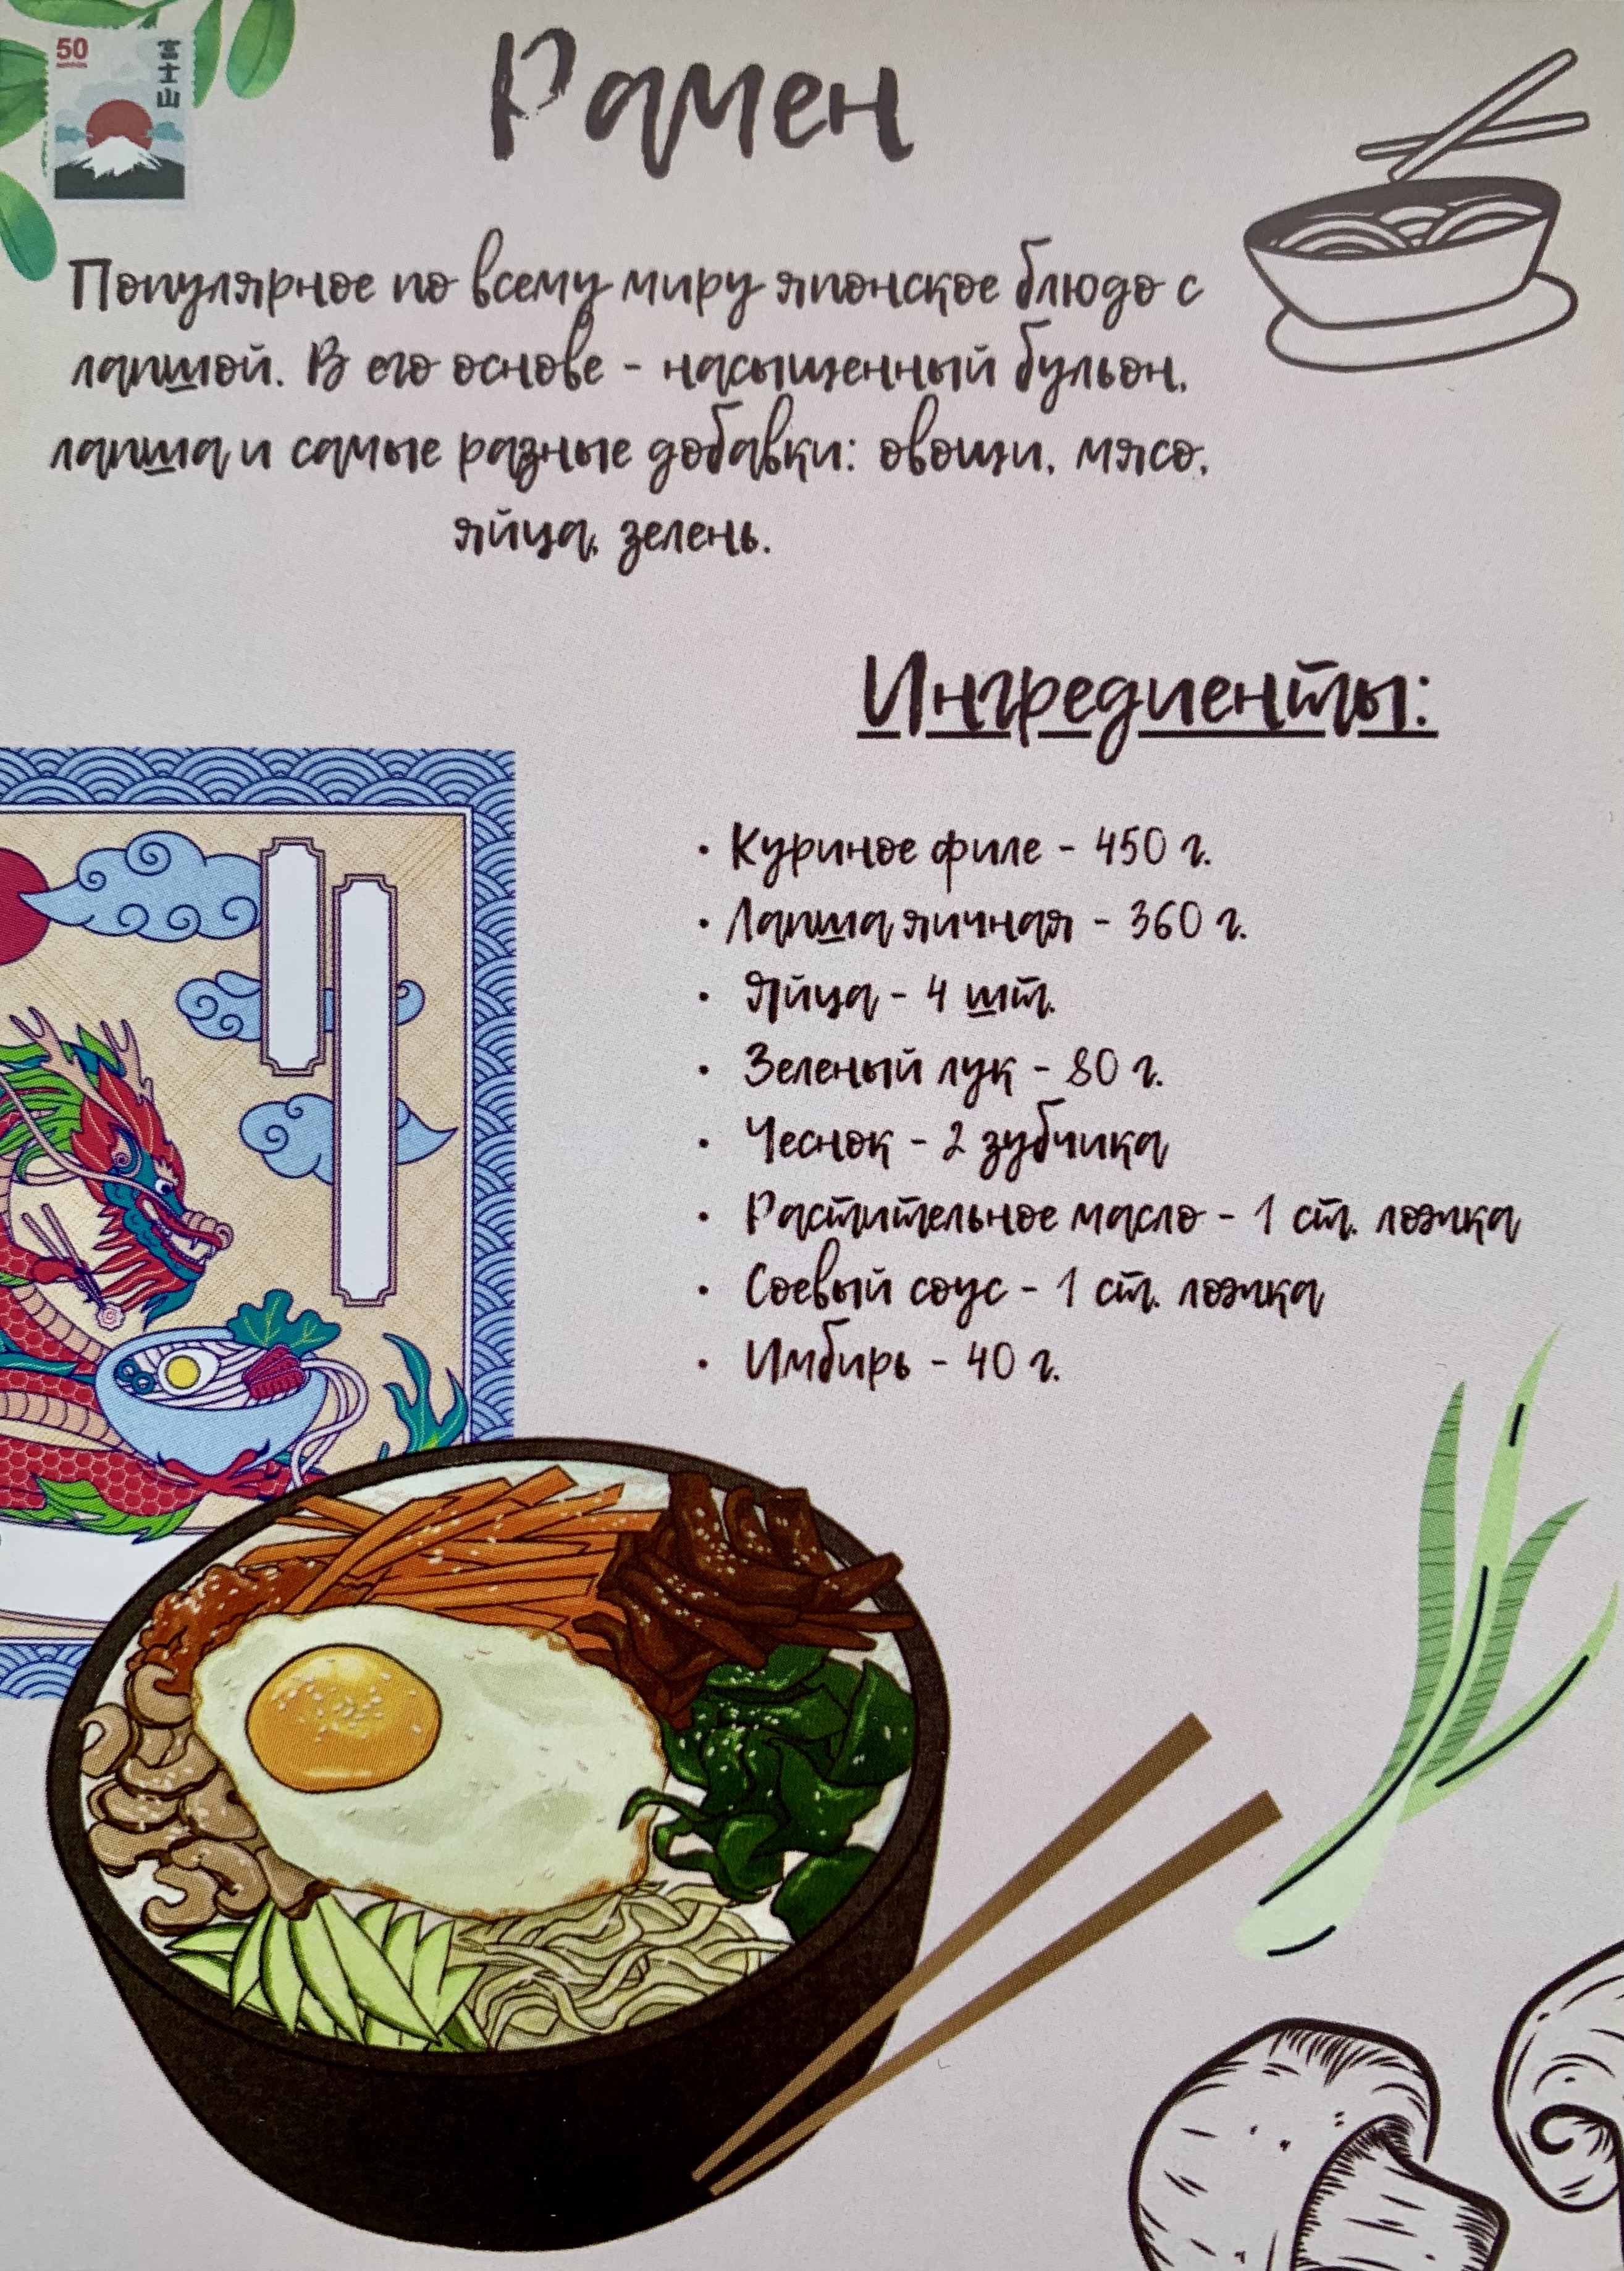 50
NIPPON
富士山
Рамен
Популярное по всему миру японское блюдо с
лапшой. В его основе - насыщенный бульон,
лапша и самые разные добавки: овощи, мясо,
яйца, зелень.
Ингредиенты:
· Куриное филе - 450 г.
· Лапша яичная - 360 г.
· Яйца - 4 шт.
· Зеленый лук - 80 г.
· Чеснок - 2 зубчика
· Растительное масло - 1 ст. ложка
· Соевый соус - 1 ст. ложка
· Имбирь - 40 г.